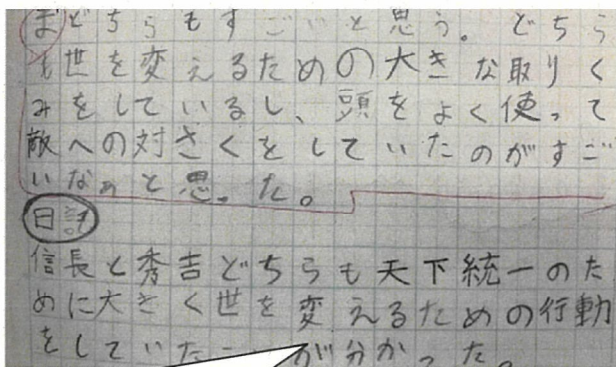 どちらもすごいと思う。どちら
も世を変えるための大きな取りく
みをしているし、頭をよく使って
敵への対さくをしていたのがすご
いなぁと思った。
日記
信長と秀吉どちらも天下統一のた
めに大きく世を変えるための行動
をしていた が分かった。